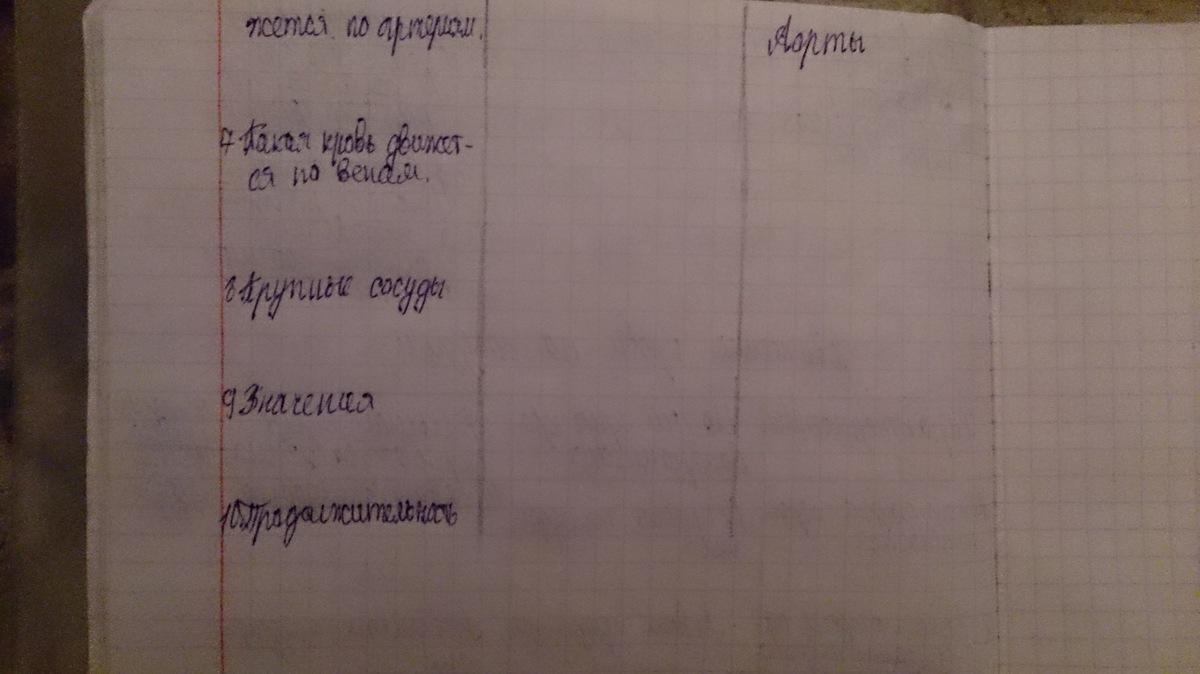 жется по артериям.
Аорты
7 Какая кровь движет-
ся по венам.
8 Крупные сосуды
9 Значения
10 Продолжительность